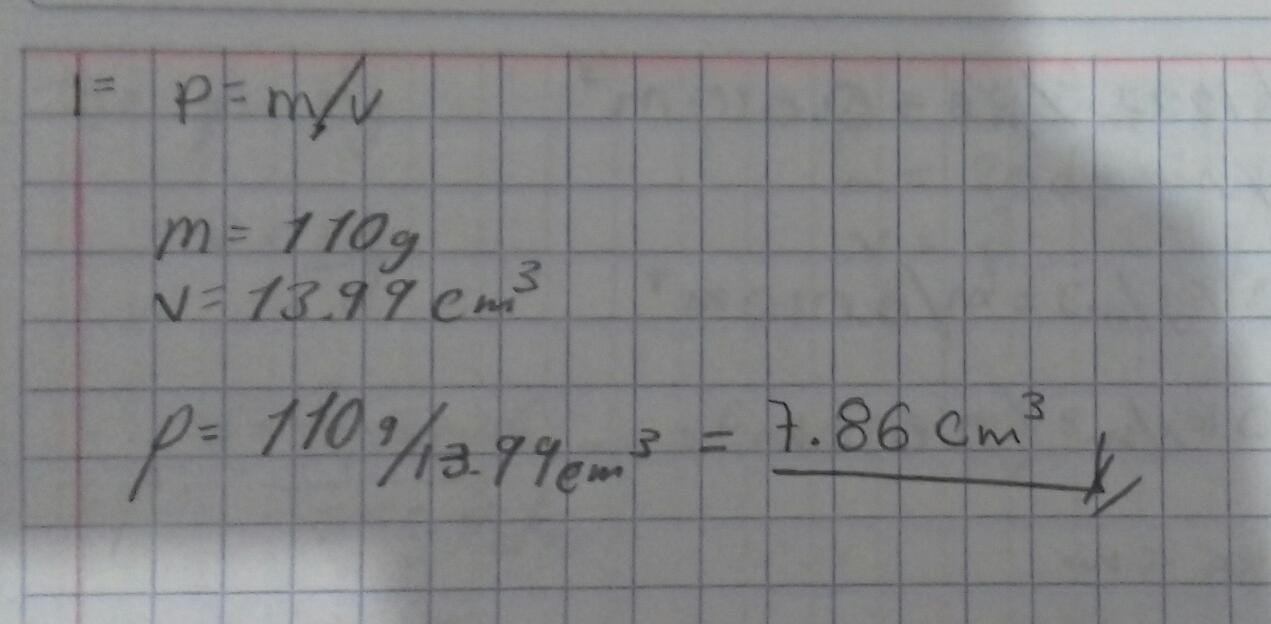 1= P=m/v
m=110g
v=13.99 cm³
ρ= 110g/13.99cm³ = 7.86 cm³